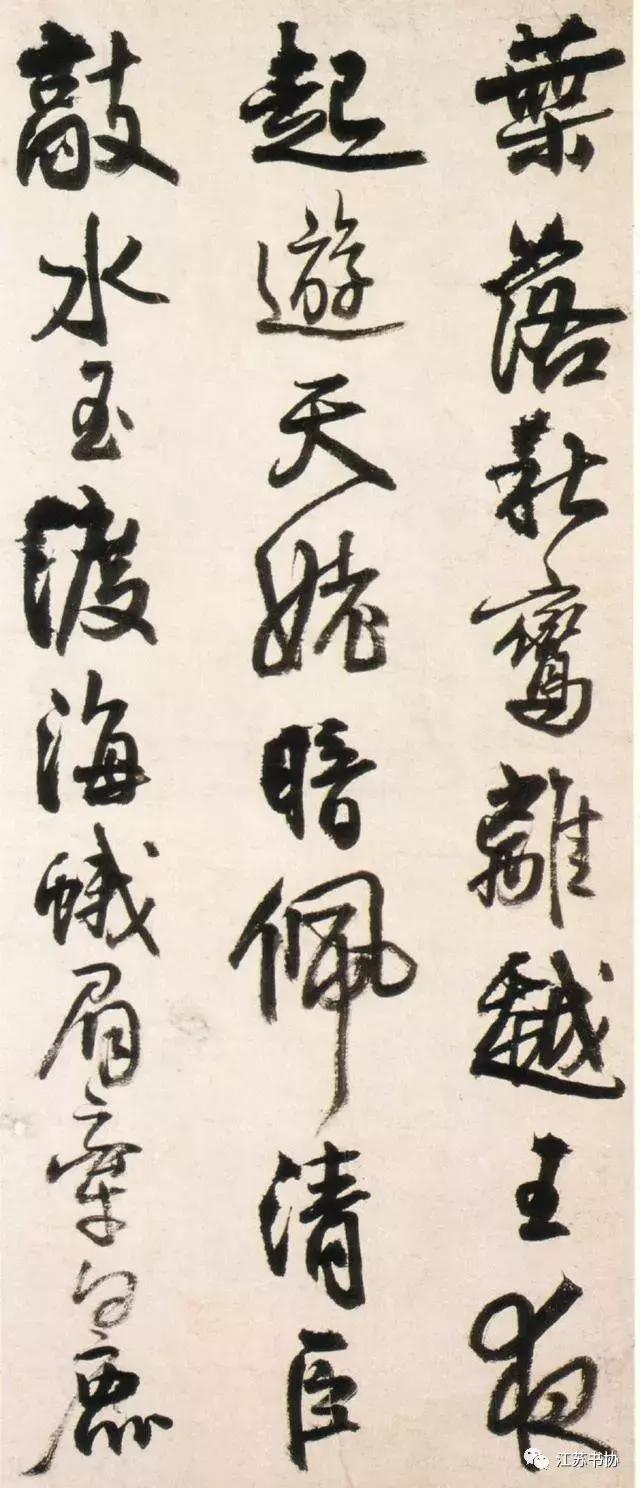 葉落秋鸞離越王夜
起遊天姥暗佩清臣
敲水玉渡海蛾眉牽白鹿
江苏书协